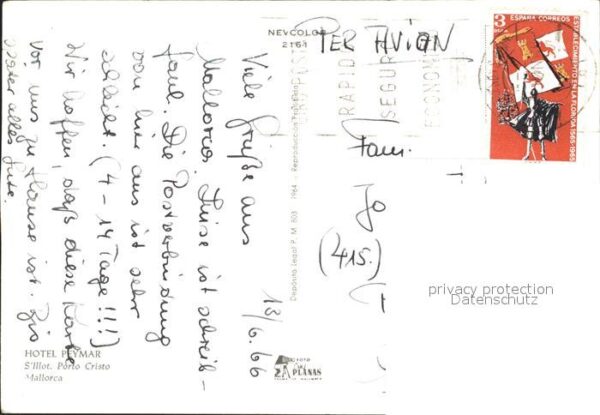 NEVCOLOR
2161
PER AVION
RAPIDO
SEGURO
ECONOM
3
PTAS
ESPAÑA CORREOS
EN LA FLORIDA 1565-1965
Viele Grüße aus
Mallorca. Luise ist schreib-
faul. Die Postverbindung
von hier aus ist sehr
schlecht. (4-14 Tage!!!)
Wir hoffen, daß diese Karte
vor uns zu Hause ist. Bis
später alles Gute.
13/6.66
Fam.
Jo
(415.)
Depósito Legal P. M. 803 - 1964 - Reproduction
HOTEL PEYMAR
S'Illot. Porto Cristo
Mallorca
FOTO
PLANAS
privacy protection
Datenschutz